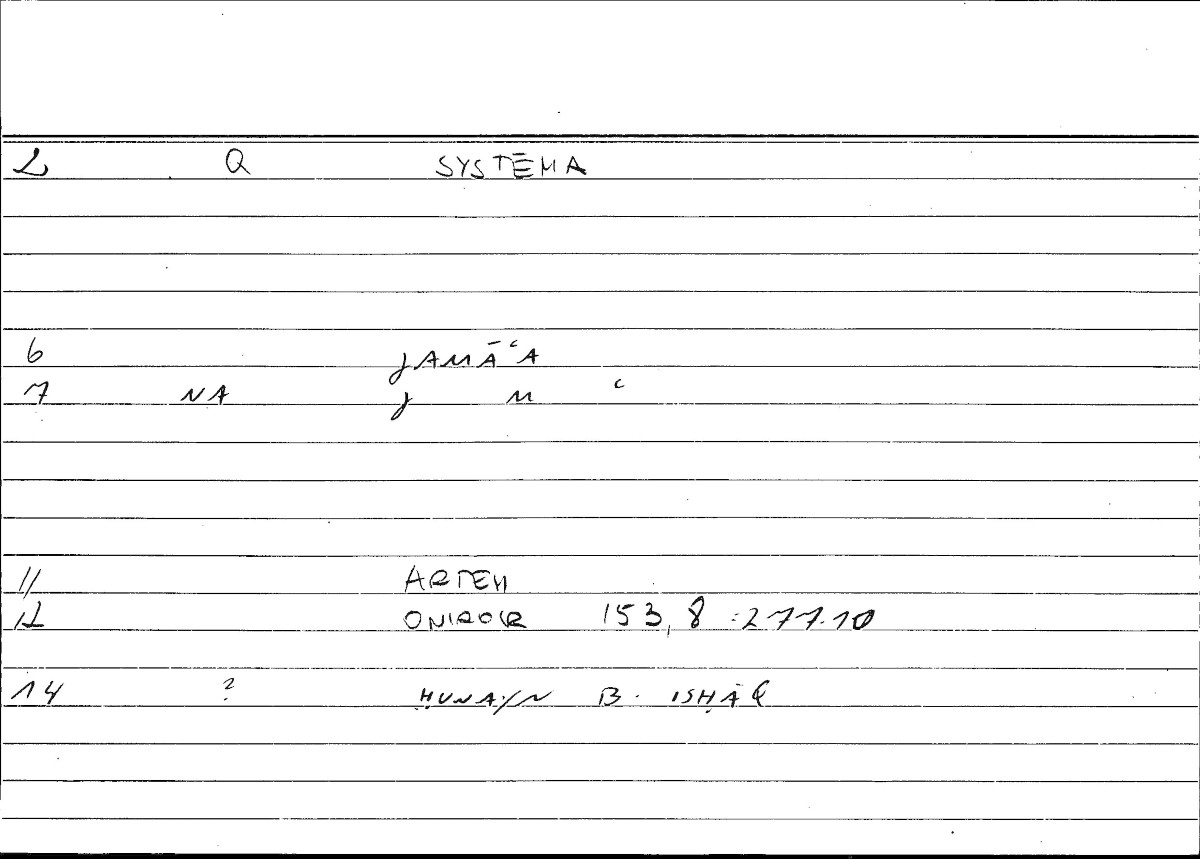 2 Q SYSTĒMA
6 JAMĀʿA
7 NA J M ʿ
11 ARTEM
12 ONIROCR 153,8 :277.10
14 ? ḤUNAYN B. ISḤĀQ